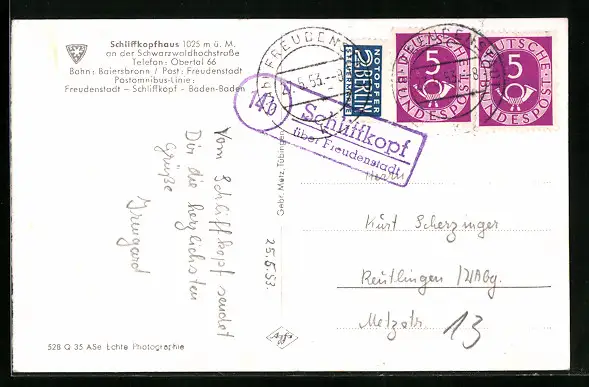 Schliffkopfhaus 1025 m ü. M.
an der Schwarzwaldhochstraße
Telefon: Obertal 66
Bahn: Baiersbronn / Post: Freudenstadt
Postomnibus-Linie:
Freudenstadt – Schliffkopf – Baden-Baden
Vom Schliffkopf sendet
Dir die herzlichsten
Grüße
Irmgard
25.5.53.
528 Q 35 ASe Echte Photographie
Gebr. Metz, Tübingen
FREUDEN
.5.53.--8
NOTOPFER
2 BERLIN
STEUERMARKE
5
DEUTSCHE
BUNDESPOST
5
DEUTSCHE
BUNDESPOST
14b
Schliffkopf
über Freudenstadt
Herrn
Kurt Scherzinger
Reutlingen /
Metzstr. 13